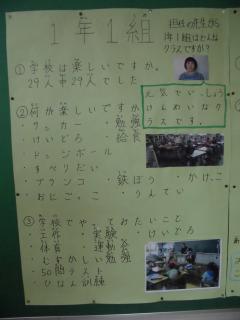 1年1組
担任の先生から
1年1組はどんな
クラスですか?
①学校は楽しいですか。
29人中29人でした
元気でいっしょう
けんめいなク
ラスです。
②何が楽しいですか
・サッカー ・勉強
・けいどろ ・給食
・ドッジボール
・すべりだい
・ブランコ ・鉄ぼう ・かけっこ
・おにごっこ ・うんてい
③学校でやってみたいこと
・工作 ・実験 ・けいどろ
・体育 ・運動会
・むずかしい勉強
・50問テスト
・ひなん訓練